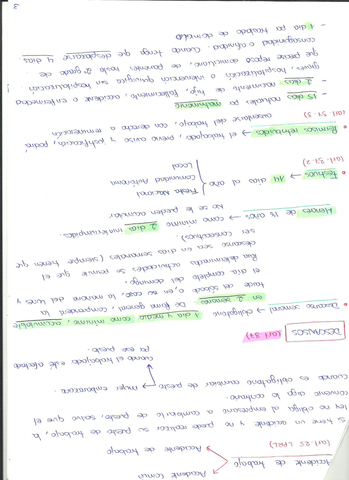 Accidente de trabajo → Accidente de trabajo
(art. 25 LPRL)
Si tiene un accidente y no puede realizar su puesto de trabajo, la
ley no obliga al empresario a cambiarlo de puesto, salvo que el
convenio diga lo contrario.
Cuando es obligatorio cambiar de puesto → mujer embarazada
cuando el trabajador esté afectado
por ese puesto.
DESCANSOS (art. 37)
• Descanso semanal → obligatorio 1 día y medio como mínimo acumulable
en 2 semanas. De forma general, comprenderá la
tarde del sábado o, en su caso, la mañana del lunes y
el día completo del domingo.
Para determinadas actividades se permite que el
descanso sea en días semanales (siempre tienen que
ser consecutivos).
Menores de 18 años → como mínimo 2 días ininterrumpidos.
No se le pueden acumular
• Festivos → 14 días al año
(art. 37.2)
Fiesta Nacional
Comunidad Autónoma
Local
• Permisos retribuidos → el trabajador, previo aviso y justificación, podrá
(art. 37.3)
ausentarse del trabajo, con derecho a remuneración
- 15 días naturales por matrimonio
- 2 días nacimiento de hijo, fallecimiento, accidente o enfermedad
graves, hospitalización o intervención quirúrgica sin hospitalización
que precise reposo domiciliario, de parientes hasta 2º grado de
consanguinidad o afinidad. Cuando tenga que desplazarse 4 días
- 1 día por traslado de domicilio
3